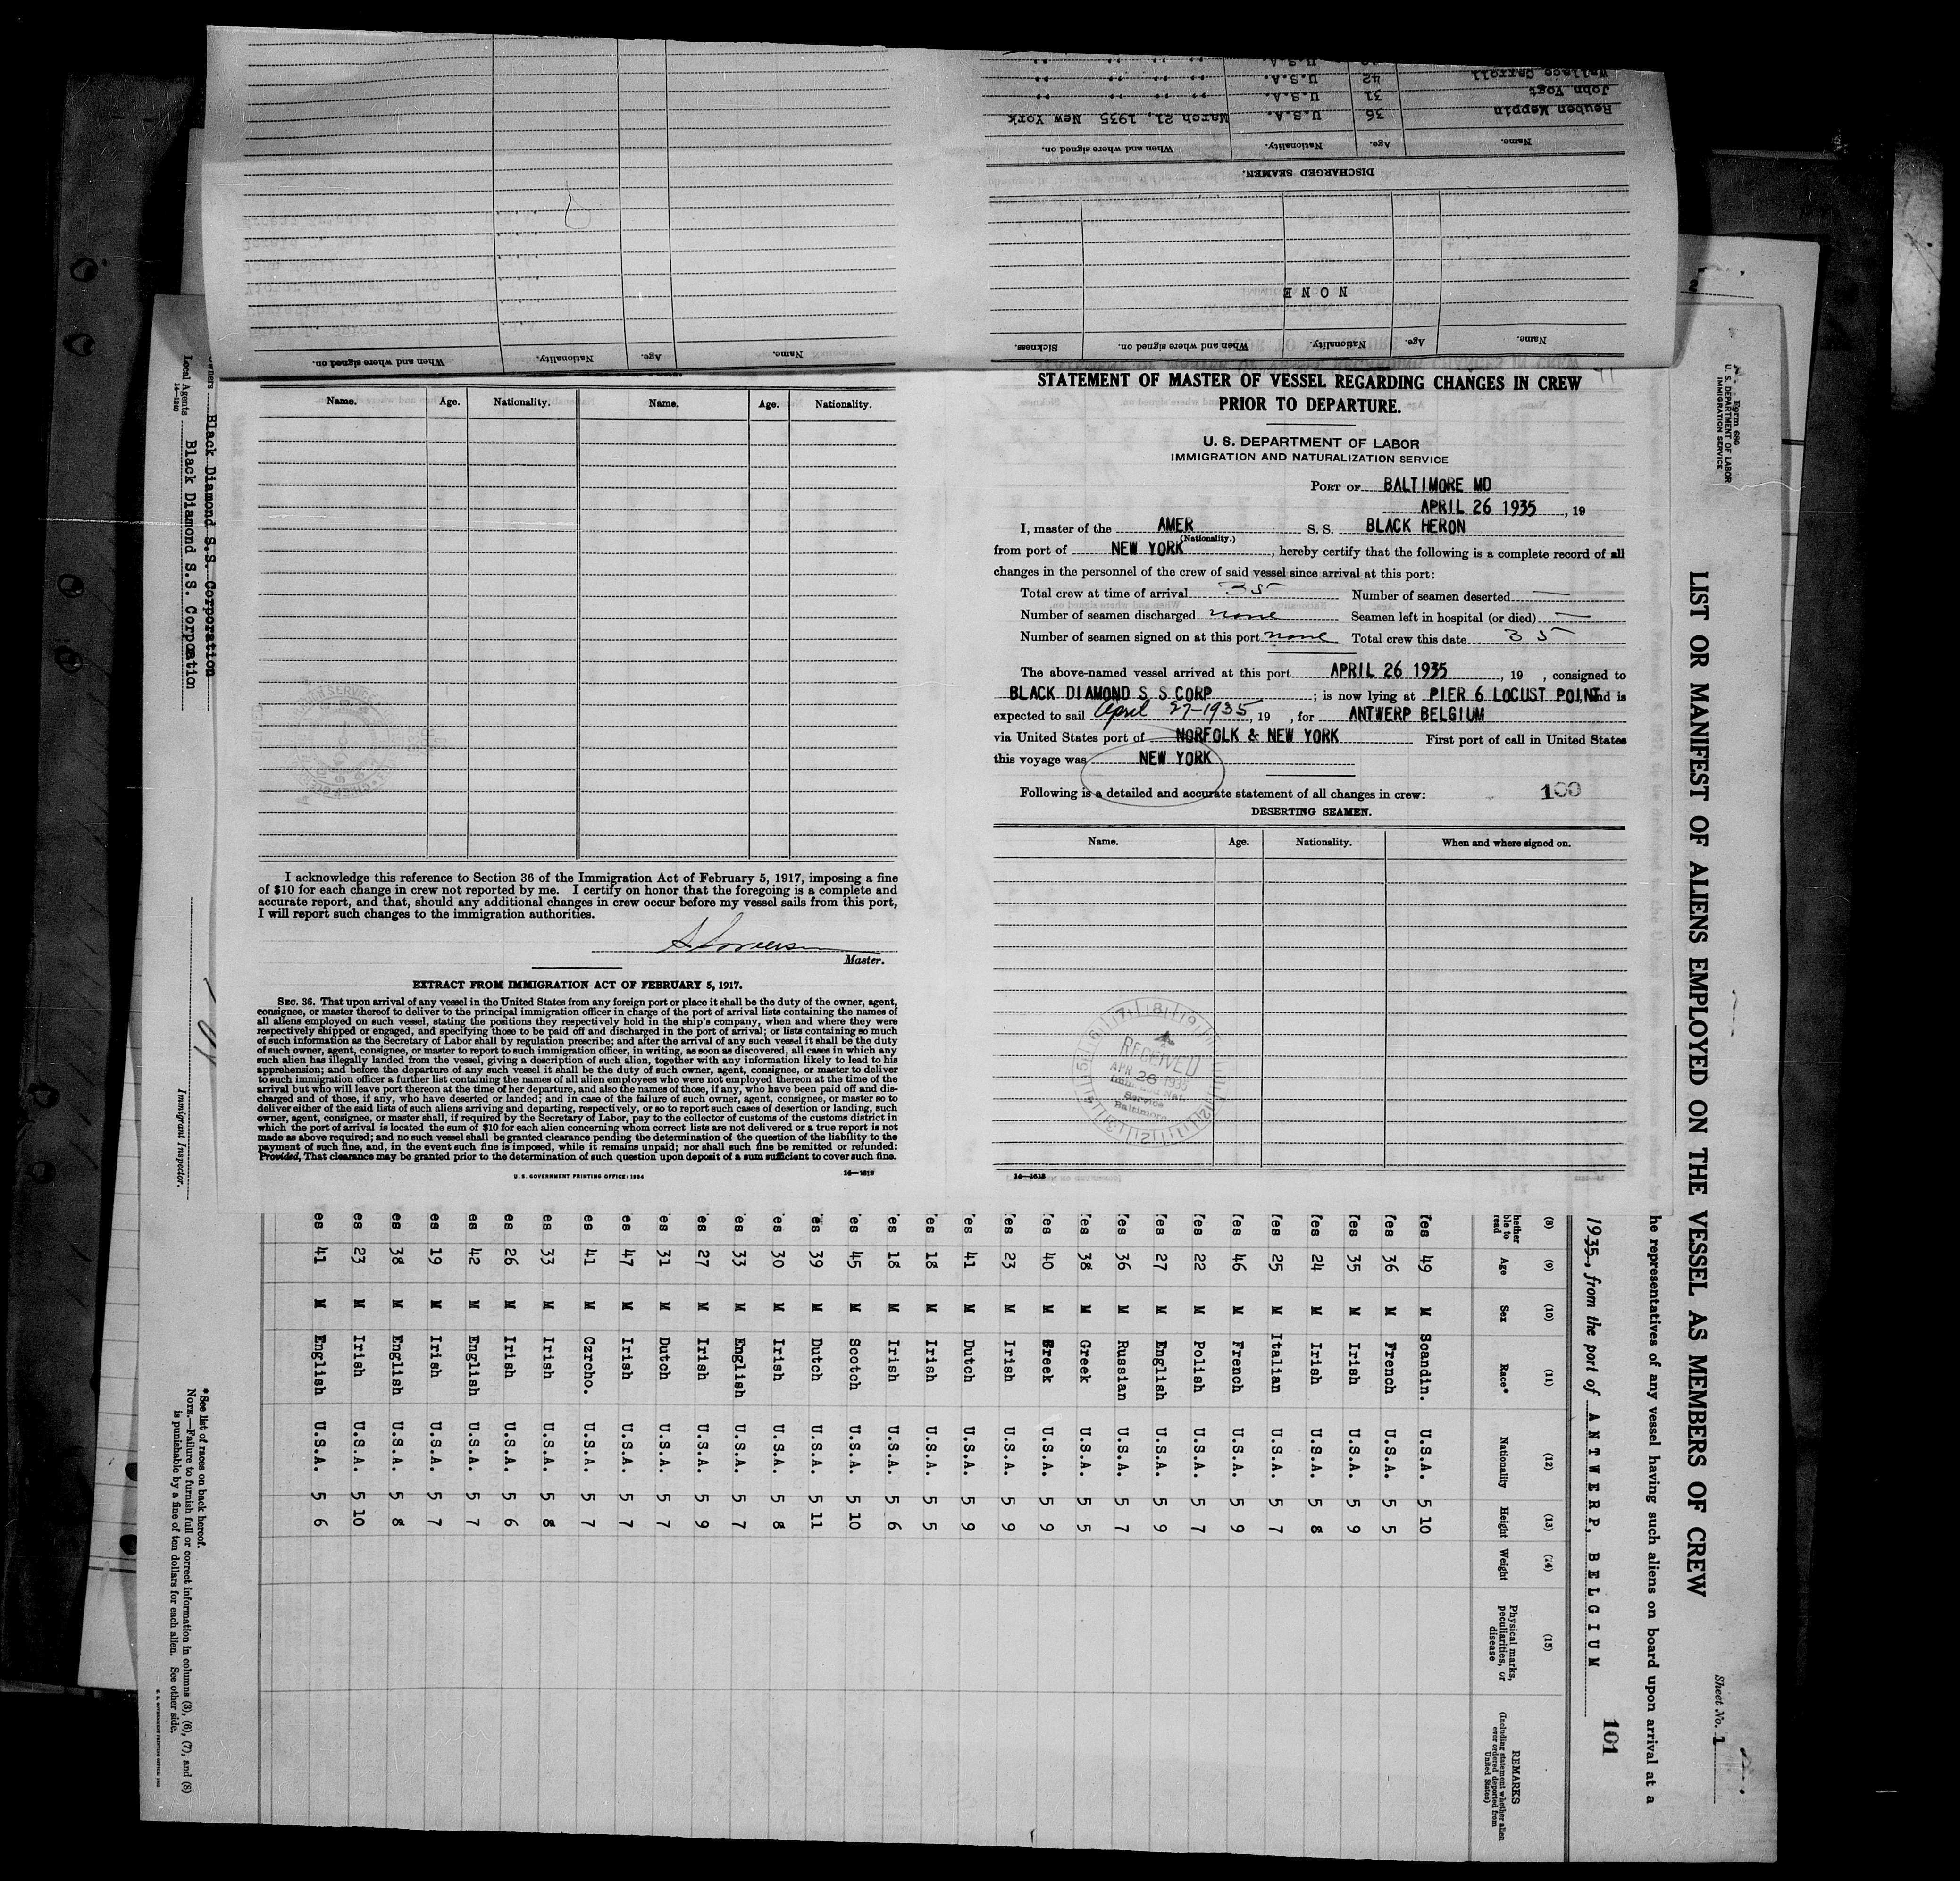 Wallace Carroll 42 U.S.A. " " " "
John Vogt 31 U.S.A. " " " "
Reuben Meppin 36 U.S.A. March 21, 1935 New York
Name. Age. Nationality. When and where signed on.
DISCHARGED SEAMEN.
NONE
Name. Age. Nationality. When and where signed on. Sickness.
Name. Age. Nationality. When and where signed on.
Name. Age. Nationality. Name. Age. Nationality.
I acknowledge this reference to Section 36 of the Immigration Act of February 5, 1917, imposing a fine
of $10 for each change in crew not reported by me. I certify on honor that the foregoing is a complete and
accurate report, and that, should any additional changes in crew occur before my vessel sails from this port,
I will report such changes to the immigration authorities.
Master.
EXTRACT FROM IMMIGRATION ACT OF FEBRUARY 5, 1917.
SEC. 36. That upon arrival of any vessel in the United States from any foreign port or place it shall be the duty of the owner, agent,
consignee, or master thereof to deliver to the principal immigration officer in charge of the port of arrival lists containing the names of
all aliens employed on such vessel, stating the positions they respectively hold in the ship's company, when and where they were
respectively shipped or engaged, and specifying those to be paid off and discharged in the port of arrival; or lists containing so much
of such information as the Secretary of Labor shall by regulation prescribe; and after the arrival of any such vessel it shall be the duty
of such owner, agent, consignee, or master to report to such immigration officer, in writing, as soon as discovered, all cases in which any
such alien has illegally landed from the vessel, giving a description of such alien, together with any information likely to lead to his
apprehension; and before the departure of any such vessel it shall be the duty of such owner, agent, consignee, or master to deliver
to such immigration officer a further list containing the names of all alien employees who were not employed thereon at the time of the
arrival but who will leave port thereon at the time of her departure, and also the names of those, if any, who have been paid off and dis-
charged and of those, if any, who have deserted or landed; and in case of the failure of such owner, agent, consignee, or master so to
deliver either of the said lists of such aliens arriving and departing, respectively, or so to report such cases of desertion or landing, such
owner, agent, consignee, or master shall, if required by the Secretary of Labor, pay to the collector of customs of the customs district in
which the port of arrival is located the sum of $10 for each alien concerning whom correct lists are not delivered or a true report is not
made as above required; and no such vessel shall be granted clearance pending the determination of the question of the liability to the
payment of such fine, and, in the event such fine is imposed, while it remains unpaid; nor shall such fine be remitted or refunded:
Provided, That clearance may be granted prior to the determination of such question upon deposit of a sum sufficient to cover such fine.
U. S. GOVERNMENT PRINTING OFFICE: 1934 14—1613
STATEMENT OF MASTER OF VESSEL REGARDING CHANGES IN CREW
PRIOR TO DEPARTURE.
U. S. DEPARTMENT OF LABOR
IMMIGRATION AND NATURALIZATION SERVICE
PORT OF BALTIMORE MD
APRIL 26 1935, 19
I, master of the AMER S. S. BLACK HERON
(Nationality.)
from port of NEW YORK, hereby certify that the following is a complete record of all
changes in the personnel of the crew of said vessel since arrival at this port:
Total crew at time of arrival 35 Number of seamen deserted —
Number of seamen discharged none Seamen left in hospital (or died) —
Number of seamen signed on at this port none Total crew this date 35
The above-named vessel arrived at this port APRIL 26 1935, 19 , consigned to
BLACK DIAMOND S S CORP ; is now lying at PIER 6 LOCUST POINT, and is
expected to sail April 27-1935, 19 , for ANTWERP BELGIUM
via United States port of NORFOLK & NEW YORK First port of call in United States
this voyage was NEW YORK
Following is a detailed and accurate statement of all changes in crew: 100
DESERTING SEAMEN.
Name. Age. Nationality. When and where signed on.
RECEIVED
APR 26 1935
Service
Baltimore
14—1613
Form 680
U. S. DEPARTMENT OF LABOR
IMMIGRATION SERVICE
Sheet No. 1
LIST OR MANIFEST OF ALIENS EMPLOYED ON THE VESSEL AS MEMBERS OF CREW
he representatives of any vessel having such aliens on board upon arrival at a
1935, from the port of ANTWERP, BELGIUM
101
(8) (9) (10) (11) (12) (13) (14) (15)
hether ble to read Age Sex Race* Nationality Height Weight Physical marks, peculiarities, or disease REMARKS (Including statement whether alien ever ordered deported from United States)
es 49 M Scandin. U.S.A. 5 10
es 36 M French U.S.A. 5 5
es 35 M Irish U.S.A. 5 9
es 24 M Irish U.S.A. 5 8
es 25 M Italian U.S.A. 5 7
es 46 M French U.S.A. 5 9
es 22 M Polish U.S.A. 5 7
es 27 M English U.S.A. 5 9
es 36 M Russian U.S.A. 5 7
es 38 M Greek U.S.A. 5 5
es 40 M Greek U.S.A. 5 9
es 23 M Irish U.S.A. 5 9
es 41 M Dutch U.S.A. 5 9
es 18 M Irish U.S.A. 5 5
es 18 M Irish U.S.A. 5 6
es 45 M Scotch U.S.A. 5 10
es 39 M Dutch U.S.A. 5 11
es 30 M Irish U.S.A. 5 8
es 33 M English U.S.A. 5 7
es 27 M Irish U.S.A. 5 9
es 31 M Dutch U.S.A. 5 7
es 47 M Irish U.S.A. 5 7
es 41 M Czrcho. U.S.A. 5 7
es 33 M Irish U.S.A. 5 8
es 26 M Irish U.S.A. 5 6
es 42 M English U.S.A. 5 7
es 19 M Irish U.S.A. 5 7
es 38 M English U.S.A. 5 8
es 23 M Irish U.S.A. 5 10
es 41 M English U.S.A. 5 6
Owners Black Diamond S.S. Corporation
Local Agents Black Diamond S.S. Corporation
14—1240
Immigrant Inspector.
*See list of races on back hereof.
NOTE.—Failure to furnish full or correct information in columns (3), (6), (7), and (8)
is punishable by a fine of ten dollars for each alien. See other side.